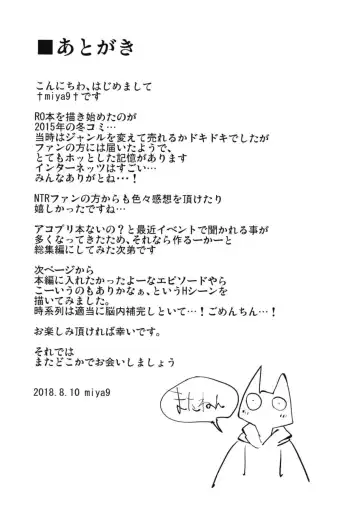 ■あとがき
こんにちわ、はじめまして
†miya9†です
RO本を描き始めたのが
2015年の冬コミ…
当時はジャンルを変えて売れるかドキドキでしたが
ファンの方には届いたようで、
とてもホッとした記憶があります
インターネッツはすごい…
みんなありがとね・・・!
NTRファンの方からも色々感想を頂けたり
嬉しかったですね…
アコプリ本ないの?と最近イベントで聞かれる事が
多くなってきたため、それなら作るーかーと
総集編にしてみた次第です
次ページから
本編に入れたかったよーなエピソードやら
こーいうのもありかなぁ、というHシーンを
描いてみました。
時系列は適当に脳内補完しといて…!ごめんちん…!
お楽しみ頂ければ幸いです。
それでは
またどこかでお会いしましょう
2018.8.10 miya9
またねん